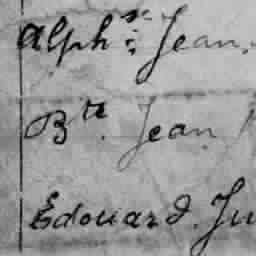 Alph.se Jean.
Bte. Jean
Edouard. Ju